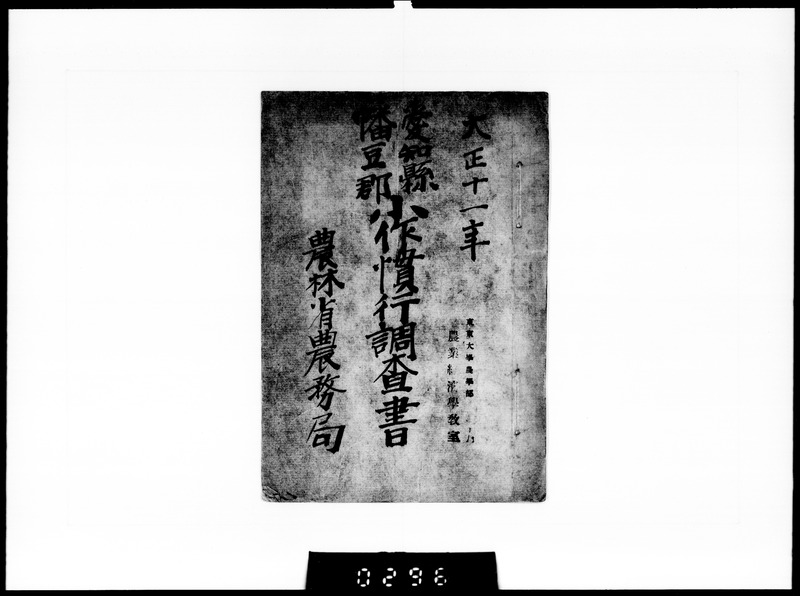 大正十一年
愛知縣
幡豆郡
小作慣行調査書
農林省農務局
東京大學農學部
農業經濟學教室
0296